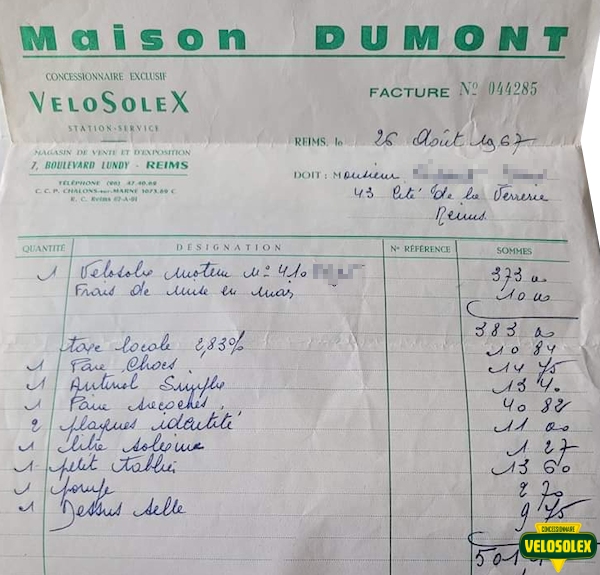 Maison DUMONT
CONCESSIONNAIRE EXCLUSIF
VELOSOLEX
STATION-SERVICE
FACTURE No 044285
MAGASIN DE VENTE ET D'EXPOSITION
7, BOULEVARD LUNDY - REIMS
TÉLÉPHONE (26) 47.40.68
C.C.P. CHALONS-sur-MARNE 1073.86 C
R. C. Reims 57-A-81
REIMS, le 26 Août 1967
DOIT : Monsieur
43 Cité de la Verrerie
Reims
QUANTITÉ DÉSIGNATION No RÉFÉRENCE SOMMES
1 Velosolex moteur No 410 373 00
Frais de mise en main 10 00
383 00
taxe locale 2,83% 10 84
1 Pare Chocs 14 75
1 Antivol Simplex 13 40
1 Paire sacoches 40 82
2 plaques identité 11 00
1 litre solexine 1 27
1 petit tablier 13 60
1 pompe 2 70
1 Dessus selle 9 75
501
CONCESSIONNAIRE
VELOSOLEX